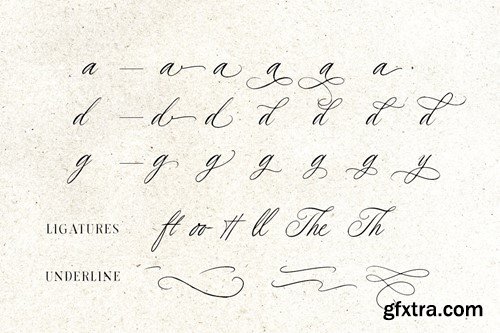 a — a a a a a
d — d d d d d d
g — g g g g g y
LIGATURES ft oo tt ll The Th
UNDERLINE
gfxtra.com